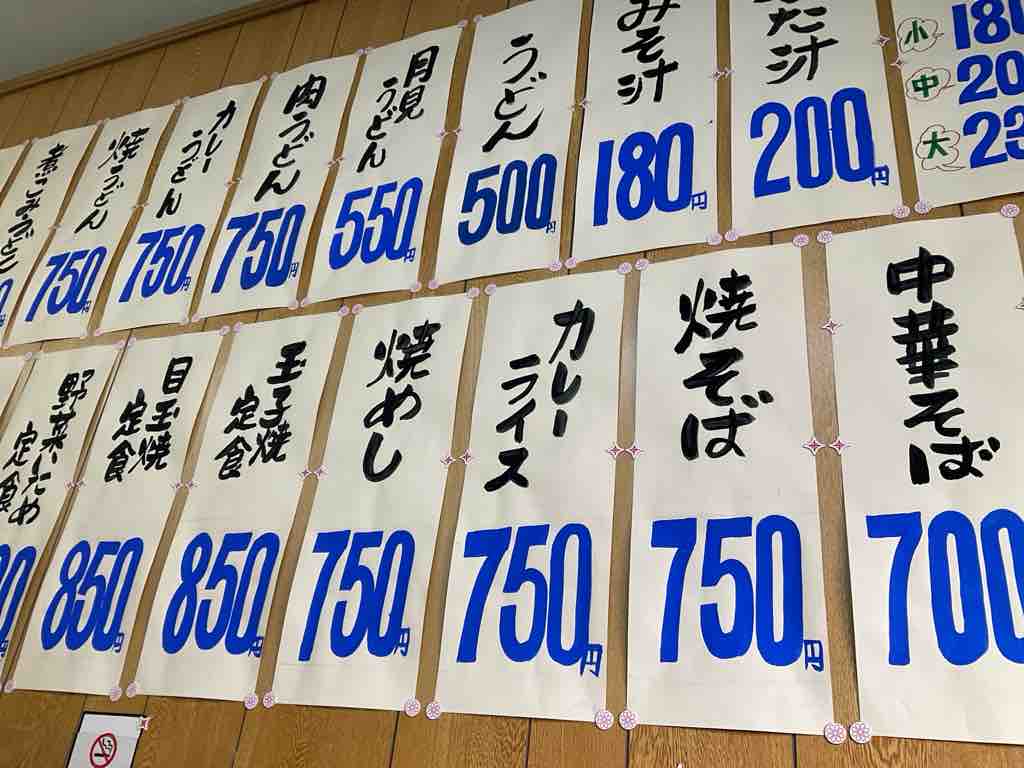 小 180
中 20
大 23
た汁
200円
みそ汁
180円
うどん
500円
月見
うどん
550円
肉うどん
750円
カレー
うどん
750円
焼うどん
750円
煮こみうどん
中華そば
700
焼そば
750円
カレー
ライス
750円
焼めし
750円
玉子焼
定食
850円
目玉焼
定食
850円
野菜いため
定食